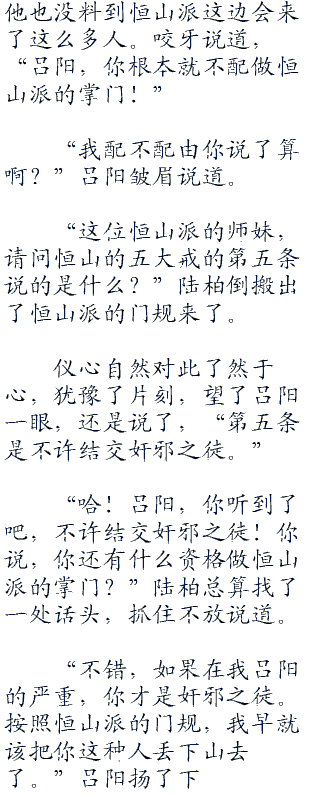 他也没料到恒山派这边会来
了这么多人。咬牙说道，
“吕阳，你根本就不配做恒
山派的掌门！”
“我配不配由你说了算
啊？”吕阳皱眉说道。
“这位恒山派的师妹，
请问恒山的五大戒的第五条
说的是什么？”陆柏倒搬出
了恒山派的门规来了。
仪心自然对此了然于
心，犹豫了片刻，望了吕阳
一眼，还是说了，“第五条
是不许结交奸邪之徒。”
“哈！吕阳，你听到了
吧，不许结交奸邪之徒！你
说，你还有什么资格做恒山
派的掌门？”陆柏总算找了
一处话头，抓住不放说道。
“不错，如果在我吕阳
的严重，你才是奸邪之徒。
按照恒山派的门规，我早就
该把你这种人丢下山去
了。”吕阳扬了下